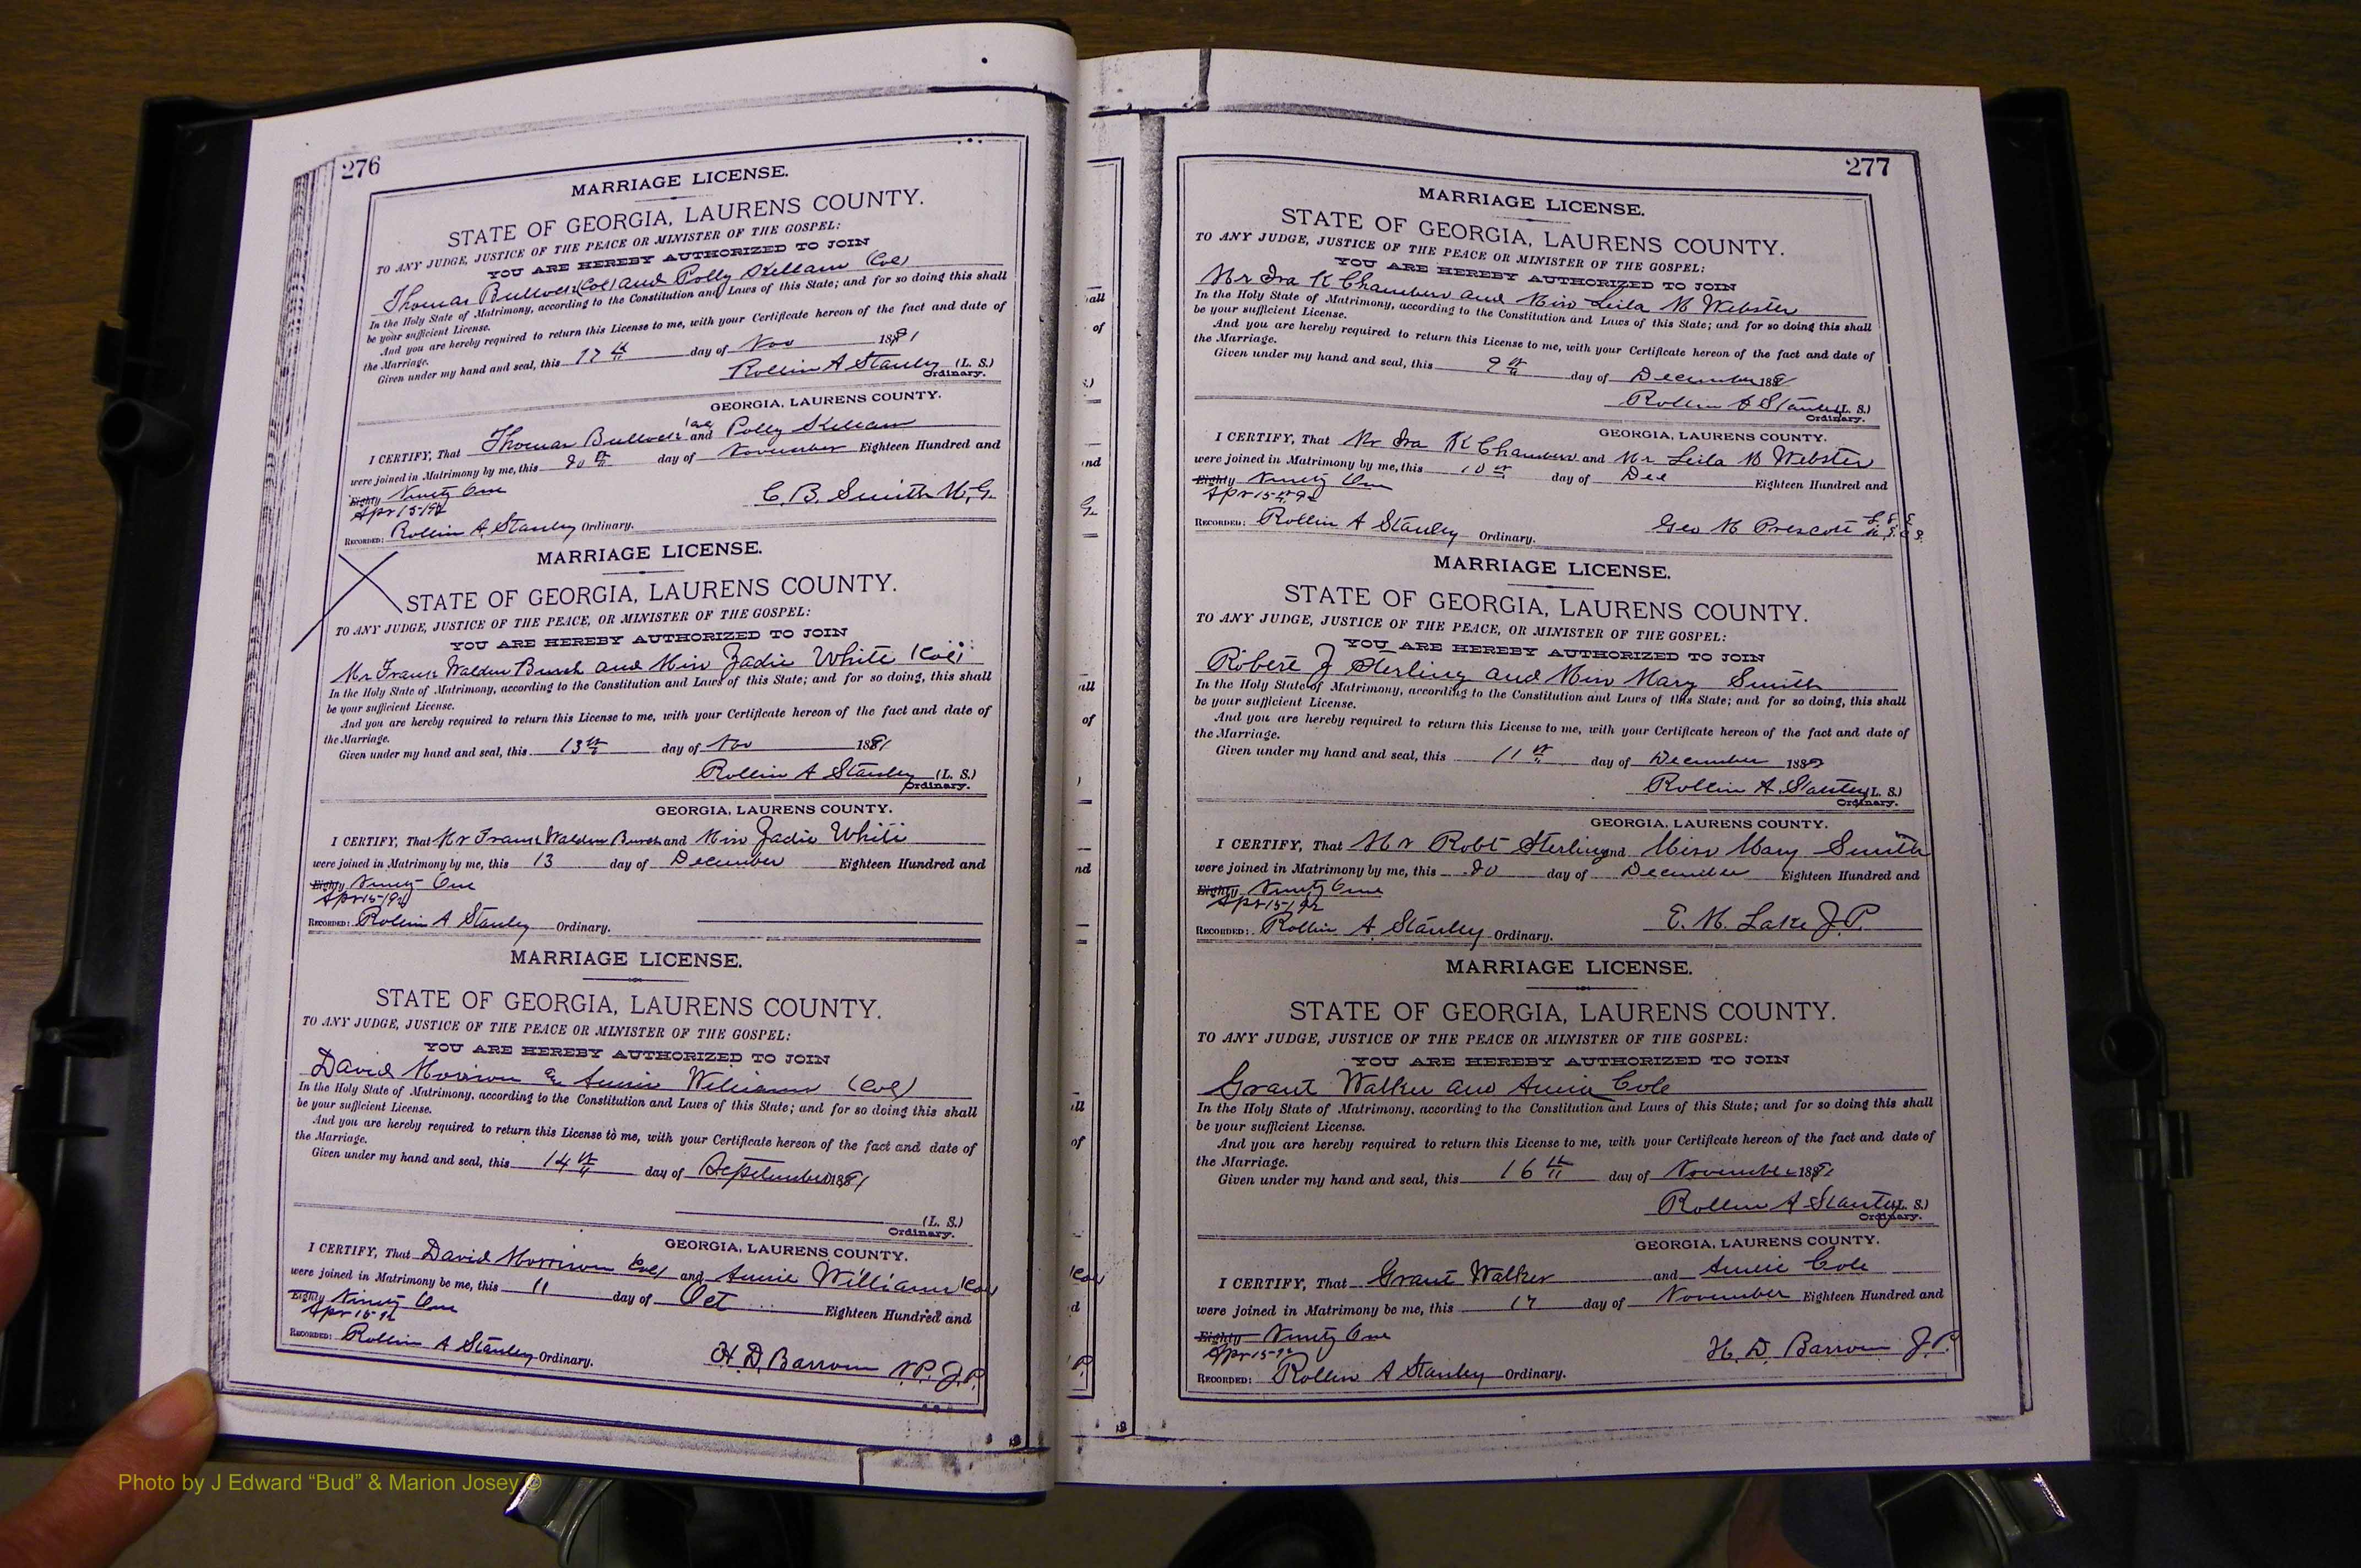 276
MARRIAGE LICENSE.
STATE OF GEORGIA, LAURENS COUNTY.
TO ANY JUDGE, JUSTICE OF THE PEACE OR MINISTER OF THE GOSPEL:
YOU ARE HEREBY AUTHORIZED TO JOIN
Thomas (Col) and Polly (Col)
In the Holy State of Matrimony, according to the Constitution and Laws of this State; and for so doing this shall
be your sufficient License.
And you are hereby required to return this License to me, with your Certificate hereon of the fact and date of
the Marriage.
Given under my hand and seal, this 17th day of Nov 1891
Rollin A Stanley (L. S.)
Ordinary.
GEORGIA, LAURENS COUNTY.
I CERTIFY, That Thomas (Col) and Polly
were joined in Matrimony by me, this 20th day of November Eighteen Hundred and
Eighty Ninety One
Apr 15/92
C. B. Smith M.G.
RECORDED: Rollin A. Stanley Ordinary.
MARRIAGE LICENSE.
STATE OF GEORGIA, LAURENS COUNTY.
TO ANY JUDGE, JUSTICE OF THE PEACE, OR MINISTER OF THE GOSPEL:
YOU ARE HEREBY AUTHORIZED TO JOIN
Mr Walden Burch and Miss Zadie White (Col)
In the Holy State of Matrimony, according to the Constitution and Laws of this State; and for so doing, this shall
be your sufficient License.
And you are hereby required to return this License to me, with your Certificate hereon of the fact and date of
the Marriage.
Given under my hand and seal, this 13th day of Nov 1891
Rollin A Stanley (L. S.)
Ordinary.
GEORGIA, LAURENS COUNTY.
I CERTIFY, That Mr Walden Burch and Miss Zadie White
were joined in Matrimony by me, this 13 day of December Eighteen Hundred and
Eighty Ninety One
Apr 15/92
RECORDED: Rollin A Stanley Ordinary.
MARRIAGE LICENSE.
STATE OF GEORGIA, LAURENS COUNTY.
TO ANY JUDGE, JUSTICE OF THE PEACE OR MINISTER OF THE GOSPEL:
YOU ARE HEREBY AUTHORIZED TO JOIN
David Morrison & Annie Williams (Col)
In the Holy State of Matrimony, according to the Constitution and Laws of this State; and for so doing this shall
be your sufficient License.
And you are hereby required to return this License to me, with your Certificate hereon of the fact and date of
the Marriage.
Given under my hand and seal, this 14th day of September 1891
(L. S.)
Ordinary.
GEORGIA, LAURENS COUNTY.
I CERTIFY, That David Morrison (Col) and Annie Williams (Col)
were joined in Matrimony be me, this 11 day of Oct Eighteen Hundred and
Eighty Ninety One
Apr 15-92
RECORDED: Rollin A Stanley Ordinary.
H. D. Barron N.P. J.P.
277
MARRIAGE LICENSE.
STATE OF GEORGIA, LAURENS COUNTY.
TO ANY JUDGE, JUSTICE OF THE PEACE OR MINISTER OF THE GOSPEL:
YOU ARE HEREBY AUTHORIZED TO JOIN
Mr Ira K Chambers and Miss Leila M Webster
In the Holy State of Matrimony, according to the Constitution and Laws of this State; and for so doing this shall
be your sufficient License.
And you are hereby required to return this License to me, with your Certificate hereon of the fact and date of
the Marriage.
Given under my hand and seal, this 9th day of December 1891
Rollin A Stanley (L. S.)
Ordinary.
GEORGIA, LAURENS COUNTY.
I CERTIFY, That Mr Ira K Chambers and Mr Leila M Webster
were joined in Matrimony by me, this 10th day of Dec Eighteen Hundred and
Eighty Ninety One
Apr 15th 92
RECORDED: Rollin A Stanley Ordinary.
Geo M Prescott
MARRIAGE LICENSE.
STATE OF GEORGIA, LAURENS COUNTY.
TO ANY JUDGE, JUSTICE OF THE PEACE, OR MINISTER OF THE GOSPEL:
YOU ARE HEREBY AUTHORIZED TO JOIN
Robert J Sterling and Miss Mary Smith
In the Holy State of Matrimony, according to the Constitution and Laws of this State; and for so doing, this shall
be your sufficient License.
And you are hereby required to return this License to me, with your Certificate hereon of the fact and date of
the Marriage.
Given under my hand and seal, this 11th day of December
Rollin A. Stanley (L. S.)
Ordinary.
GEORGIA, LAURENS COUNTY.
I CERTIFY, That Mr Robt Sterling and Miss Mary Smith
were joined in Matrimony by me, this 20 day of December Eighteen Hundred and
Eighty Ninety One
Apr 15/92
E. M. Lake J.P.
RECORDED: Rollin A. Stanley Ordinary.
MARRIAGE LICENSE.
STATE OF GEORGIA, LAURENS COUNTY.
TO ANY JUDGE, JUSTICE OF THE PEACE OR MINISTER OF THE GOSPEL:
YOU ARE HEREBY AUTHORIZED TO JOIN
Grant Walker and Annie Cole
In the Holy State of Matrimony, according to the Constitution and Laws of this State; and for so doing this shall
be your sufficient License.
And you are hereby required to return this License to me, with your Certificate hereon of the fact and date of
the Marriage.
Given under my hand and seal, this 16th day of November 1891
Rollin A Stanley (L. S.)
Ordinary.
GEORGIA, LAURENS COUNTY.
I CERTIFY, That Grant Walker and Annie Cole
were joined in Matrimony be me, this 17 day of November Eighteen Hundred and
Eighty Ninety One
Apr 15-92
H. D. Barron J.P.
RECORDED: Rollin A Stanley Ordinary.
Photo by J Edward “Bud” & Marion Josey ©